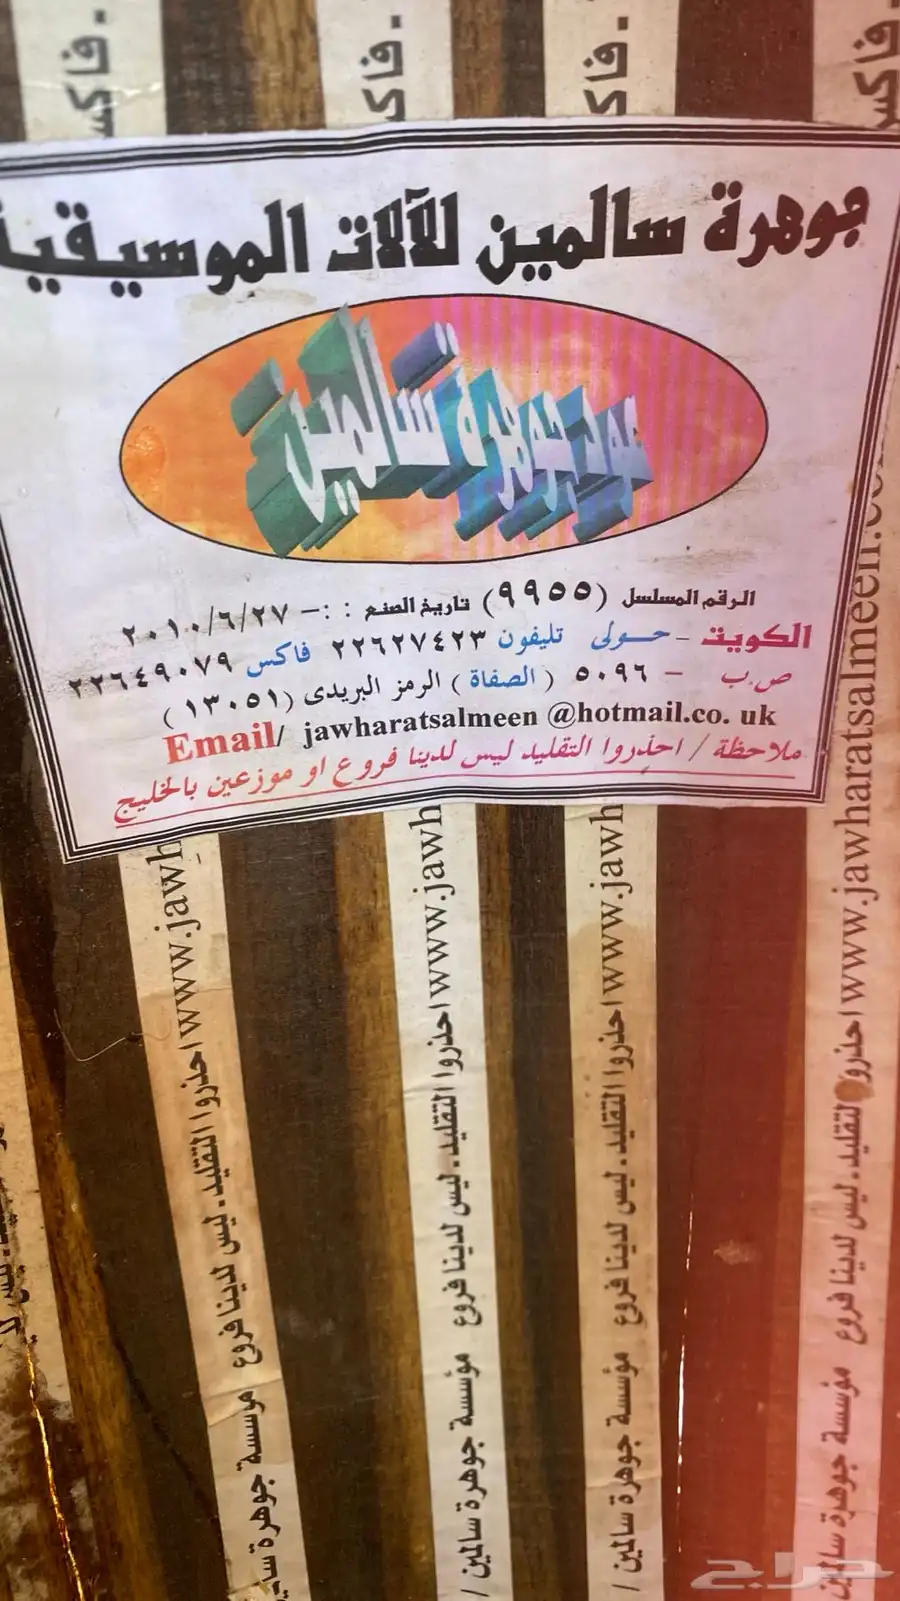 فاكس.
فاكس.
فاكس.
فاكس.
جوهرة سالمين للآلات الموسيقية
عود جوهرة سالمين
الرقم المسلسل (٩٩٥٥) تاريخ الصنع : :- ٢٠١٠/٦/٢٧
الكويت - حولى تليفون ٢٢٦٢٧٤٢٣ فاكس ٢٢٦٤٩٠٧٩
ص.ب - ٥٠٩٦ (الصفاة) الرمز البريدى (١٣٠٥١)
Email/ jawharatsalmeen @hotmail.co. uk
ملاحظة / احذروا التقليد ليس لدينا فروع او موزعين بالخليج
مؤسسة جوهرة سا ليس لدينا فروع - احذروا التقليد www.jawh
مؤسسة جوهرة سالمين / ليس لدينا فروع - احذروا التقليد www.jawh
مؤسسة جوهرة سالمين / ليس لدينا فروع - احذروا التقليد www.jawh
مؤسسة جوهرة سالمين ليس لدينا فروع - احذروا التقليد www.jawharatsalmeen.c
حراج